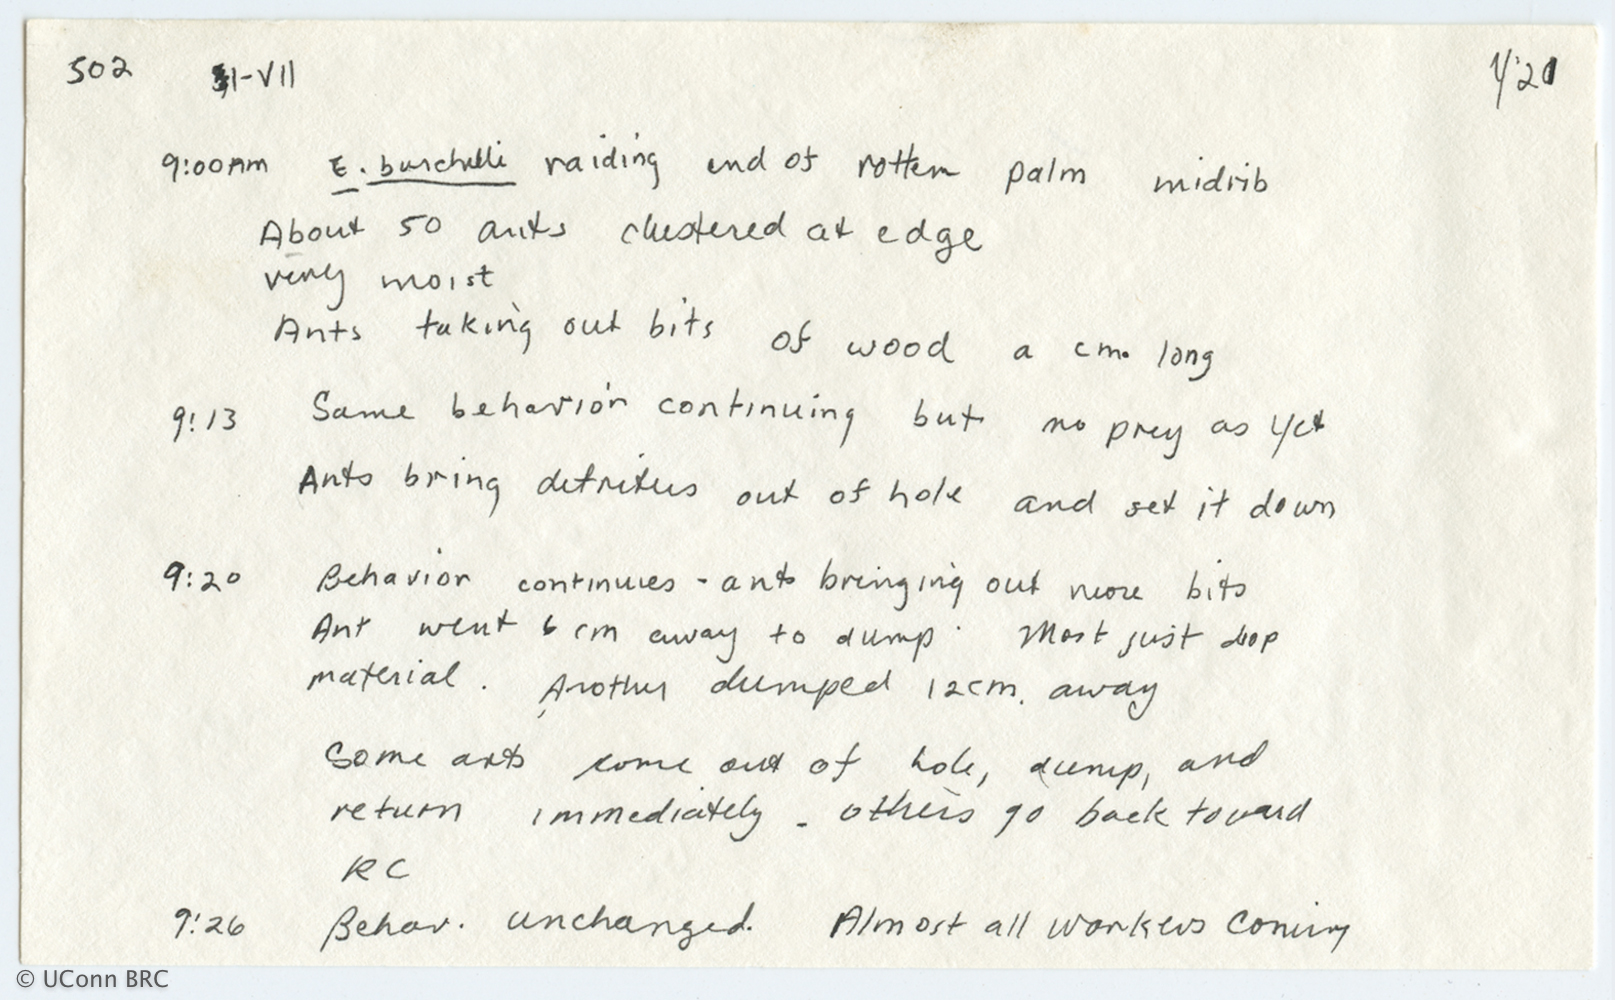 502 II-VII 1/20
9:00AM E. burchelli raiding end of rotten palm midrib
About 50 ants clustered at edge
very moist
Ants taking out bits of wood a cm. long
9:13 Same behavior continuing but no prey as yet
Ants bring detritus out of hole and set it down
9:20 Behavior continues - ants bringing out more bits
Ant went 6 cm away to dump. Most just drop
material. Another dumped 12 cm. away
Some ants come out of hole, dump, and
return immediately - others go back toward
RC
9:26 Behav. unchanged. Almost all workers coming
© UConn BRC